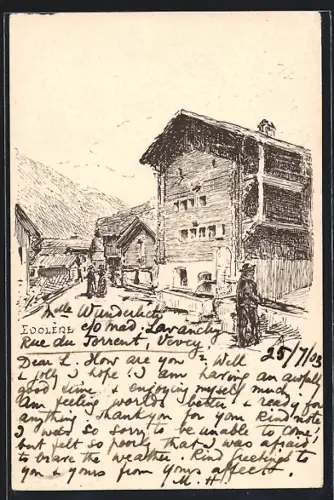 Mlle Wunderlich
EVOLÈNE c/o Mad. Lavanchy
Rue du Torrent, Vevey
25/7/03
Dear L. How are you? Well
& jolly I hope! I am having an awfully
good time & enjoying myself much.
Am feeling worlds better & ready for
anything. Thank you for your kind note
I was so sorry to be unable to come,
but felt so poorly that I was afraid
to brave the weather. Kind greetings to
you & yours from yours affect.
M. H.